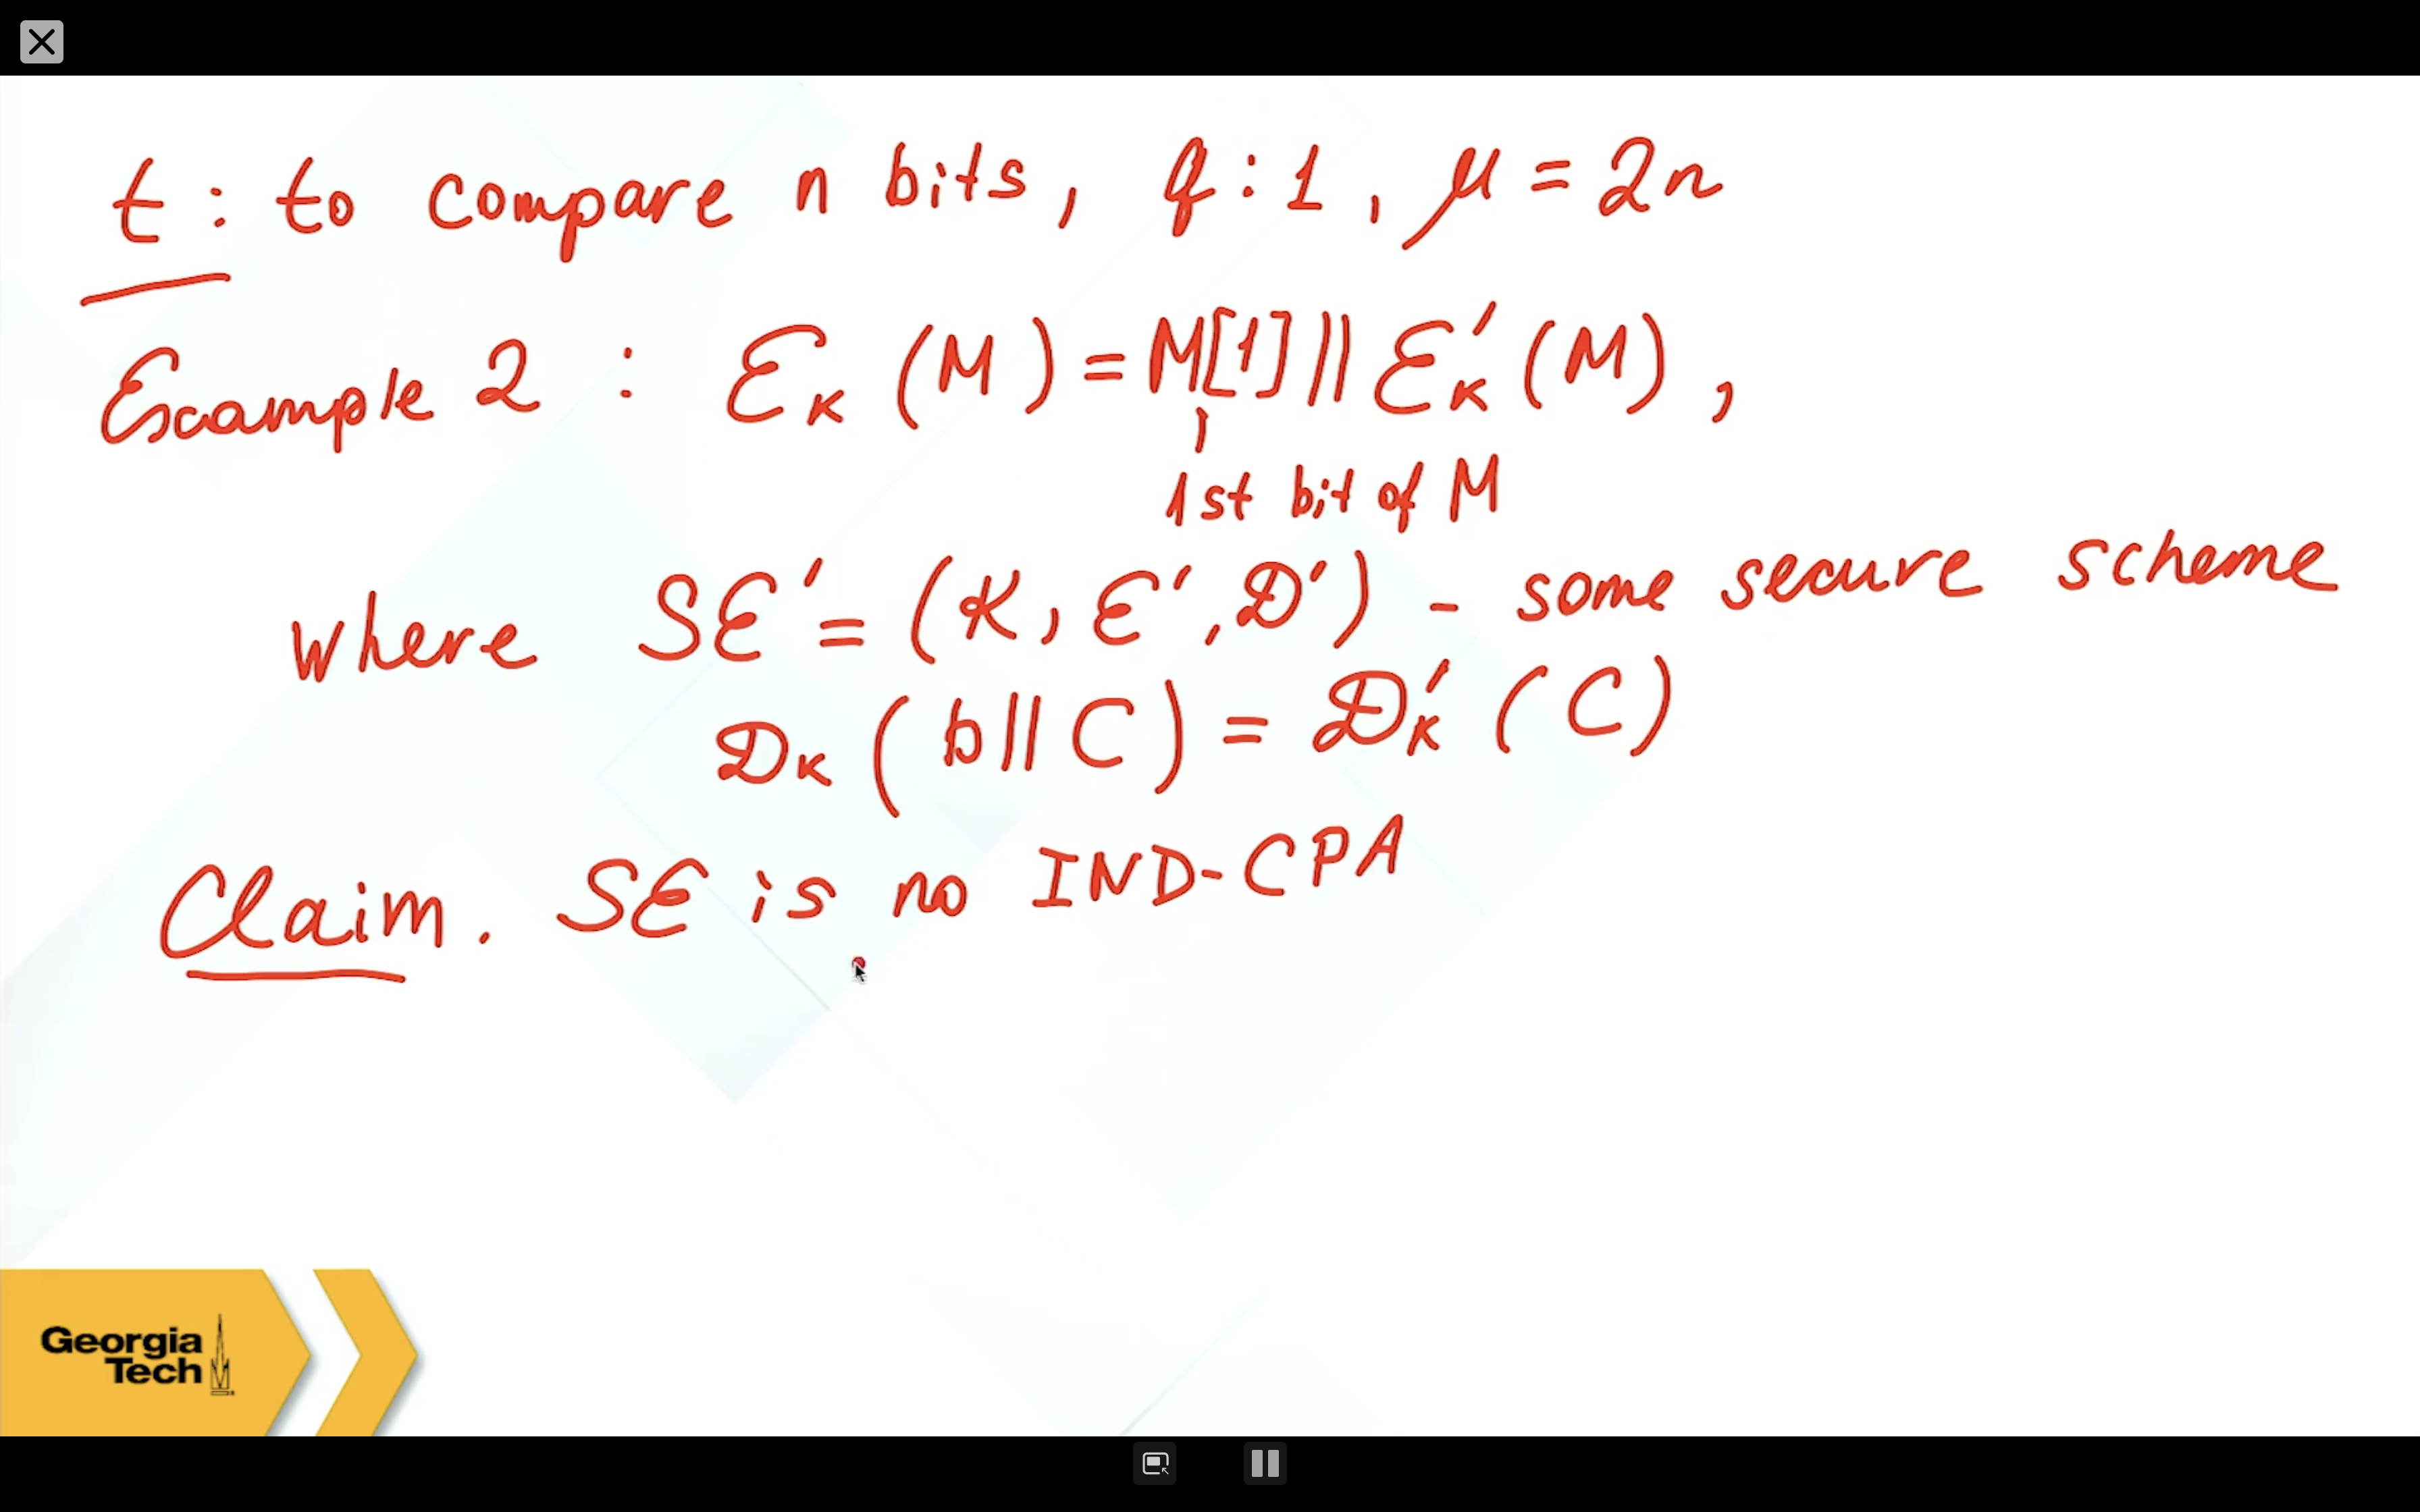 t : to compare n bits, q : 1, μ = 2n
Example 2 : Ɛ_K (M) = M[1] || Ɛ'_K (M),
1st bit of M
where SƐ' = (K, Ɛ', D') - some secure scheme
D_K (b || C) = D'_K (C)
Claim. SƐ is no IND-CPA
Georgia
Tech